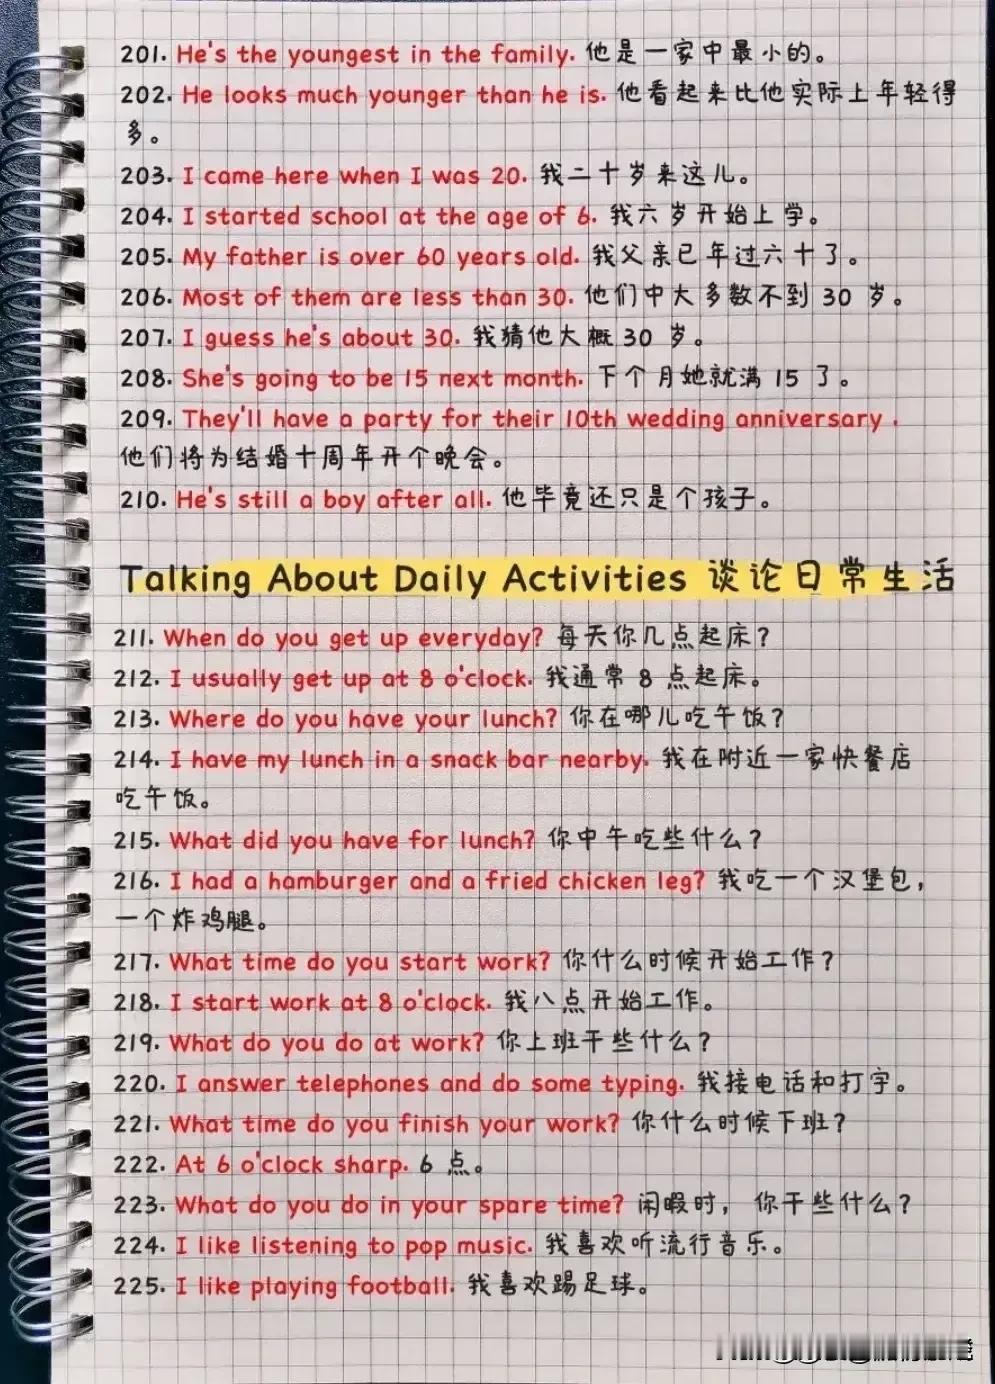 201. He's the youngest in the family. 他是一家中最小的。
202. He looks much younger than he is. 他看起来比他实际上年轻得
多。
203. I came here when I was 20. 我二十岁来这儿。
204. I started school at the age of 6. 我六岁开始上学。
205. My father is over 60 years old. 我父亲已年过六十了。
206. Most of them are less than 30. 他们中大多数不到 30 岁。
207. I guess he's about 30. 我猜他大概 30 岁。
208. She's going to be 15 next month. 下个月她就满 15 了。
209. They'll have a party for their 10th wedding anniversary .
他们将为结婚十周年开个晚会。
210. He's still a boy after all. 他毕竟还只是个孩子。
Talking About Daily Activities 谈论日常生活
211. When do you get up everyday? 每天你几点起床？
212. I usually get up at 8 o'clock. 我通常 8 点起床。
213. Where do you have your lunch? 你在哪儿吃午饭？
214. I have my lunch in a snack bar nearby. 我在附近一家快餐店
吃午饭。
215. What did you have for lunch? 你中午吃些什么？
216. I had a hamburger and a fried chicken leg? 我吃一个汉堡包，
一个炸鸡腿。
217. What time do you start work? 你什么时候开始工作？
218. I start work at 8 o'clock. 我八点开始工作。
219. What do you do at work? 你上班干些什么？
220. I answer telephones and do some typing. 我接电话和打字。
221. What time do you finish your work? 你什么时候下班？
222. At 6 o'clock sharp. 6 点。
223. What do you do in your spare time? 闲暇时， 你干些什么？
224. I like listening to pop music. 我喜欢听流行音乐。
225. I like playing football. 我喜欢踢足球。